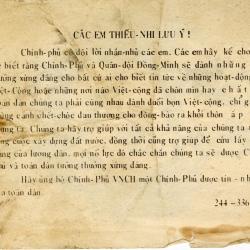 CÁC EM THIẾU-NHI LƯU Ý !
Chính-phủ có đội lời nhắn-nhủ các em. Các em hãy kể cho
biết rằng Chính-Phủ và Quân-đội Đồng-Minh sẽ dành những
tưởng xứng đáng cho bất cứ ai cho biết tin tức về những hoạt-động
Việt-Cộng hoặc những nơi nào Việt-cộng đã chôn mìn hay c
toàn dân chúng ta phải cùng nhau đánh đuổi bọn Việt-cộng, chỉ g
cảnh chết-chóc đau thương cho đồng-bào ra khỏi thôn ấp
chúng ta. Chúng ta hãy trợ giúp với tất cả khả năng của chúng ta
cuộc xây dựng đất nước, đồng thời cũng trợ giúp để cứu lấy
của lương dân. mọi nỗ lực đó chắc chắn chúng ta sẽ được C
và toàn dân tưởng thưởng xứng đáng.
Hãy ủng hộ Chính-Phủ VNCH một Chính-Phủ được tín - nh
toàn dân.
244 - 336